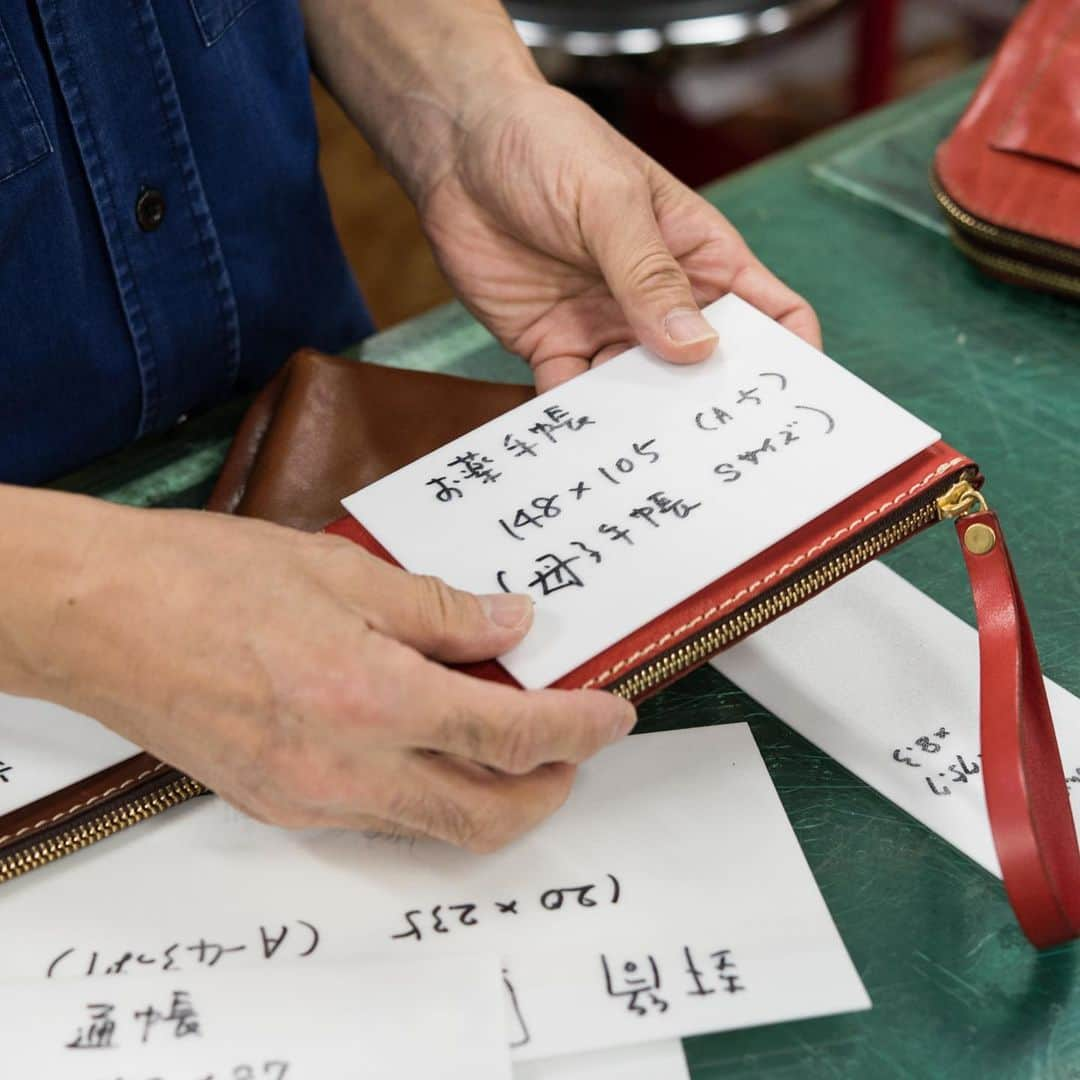 お薬手帳
148×105 (A5)
(母子手帳 Sサイズ)
封筒
120×235
(A-4 3つ折り)
通帳